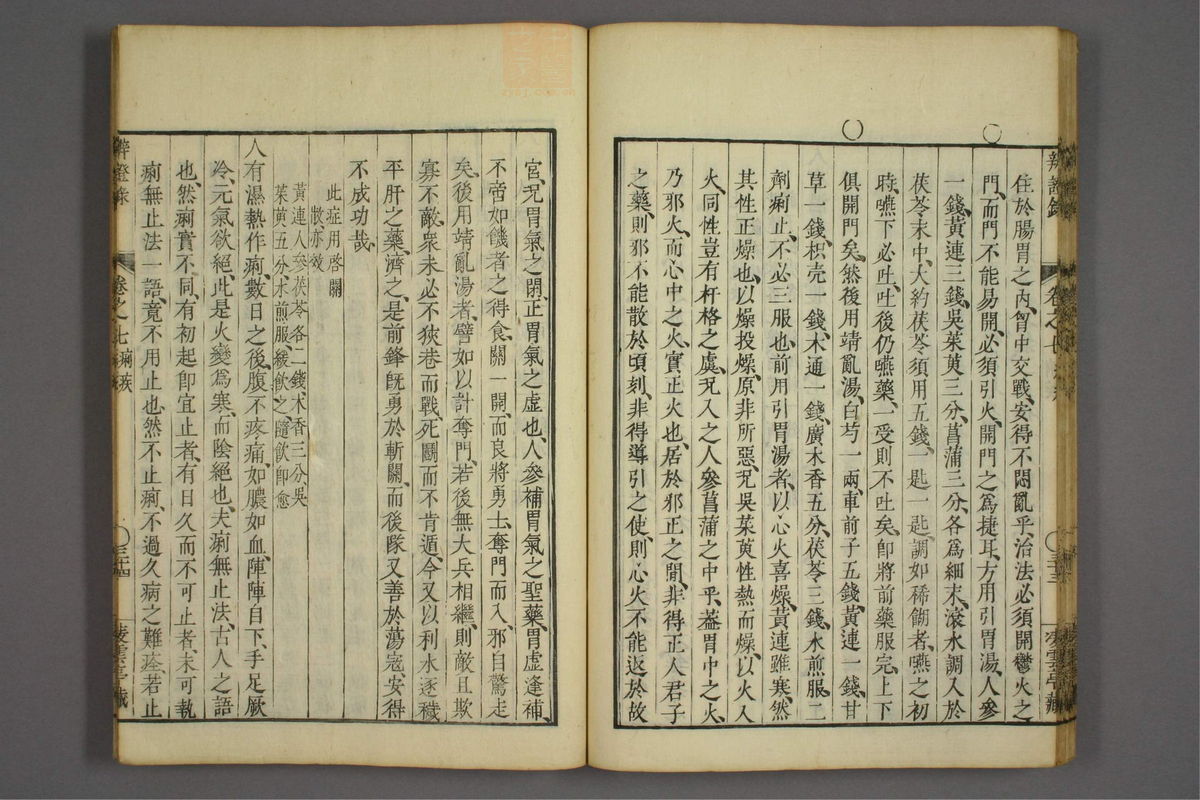 辨證錄
卷之七
三十三
凌雲亭藏
住於腸胃之內胷中交戰、安得不悶亂乎、治法必須開鬱火之
門、而門不能易開、必須引火、開門之爲捷耳、方用引胃湯、人參
一錢、黃連三錢、吳茱萸三分、菖蒲三分、各爲細末、滾水調入於
茯苓末中、大約茯苓須用五錢、一匙一匙、調如稀餬者、嚥之初
時、嚥下必吐、吐後仍嚥藥、一受則不吐矣、卽將前藥服完、上下
俱開門矣、然後用靖亂湯、白芍一兩、車前子五錢、黃連一錢、甘
草一錢、枳壳一錢、木通一錢、廣木香五分、茯苓三錢、水煎服、二
劑痢止、不必三服也、前用引胃湯者、以心火喜燥、黃連雖寒、然
其性正燥也、以燥投燥、原非所惡、况吳茱萸性熱而燥、以火入
火、同性豈有杆格之虞、况入之人參菖蒲之中乎、蓋胃中之火、
乃邪火、而心中之火、實正火也、居於邪正之間、非得正人君子
之藥、則邪不能散於頃刻、非得導引之使、則心火不能返於故
宮、况胃氣之閉、正胃氣之虛也、人參補胃氣之聖藥、胃虛逢補、
不啻如饑者之得食、關一開、而良將勇士、奪門而入、邪自驚走
矣、後用靖亂湯者、譬如以計奪門、若後無大兵相繼、則敵且欺
寡不敵衆、未必不狹巷而戰、死鬭而不肯遁、今又以利水逐穢
平肝之藥、濟之、是前鋒旣勇於斬關、而後隊又善於蕩寇、安得
不成功哉、
此症用啓關
散亦效
黃連人參茯苓各二錢木香三分吳
茱萸五分水煎服緩飲之隨飲卽愈
人有濕熱作痢、數日之後、腹不疼痛、如膿如血、陣陣自下、手足厥
冷、元氣欲絕、此是火變爲寒、而陰絕也、夫痢無止法、古人之語
也、然痢實不同、有初起卽宜止者、有日久而不可止者、未可執
痢無止法一語、竟不用止也、然不止痢、不過久病之難痊、若止
辨證錄
卷之七痢疾
三十四
凌雲亭藏